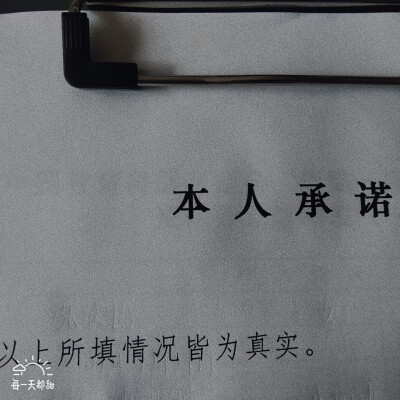 本人承诺
以上所填情况皆为真实。
每一天都甜